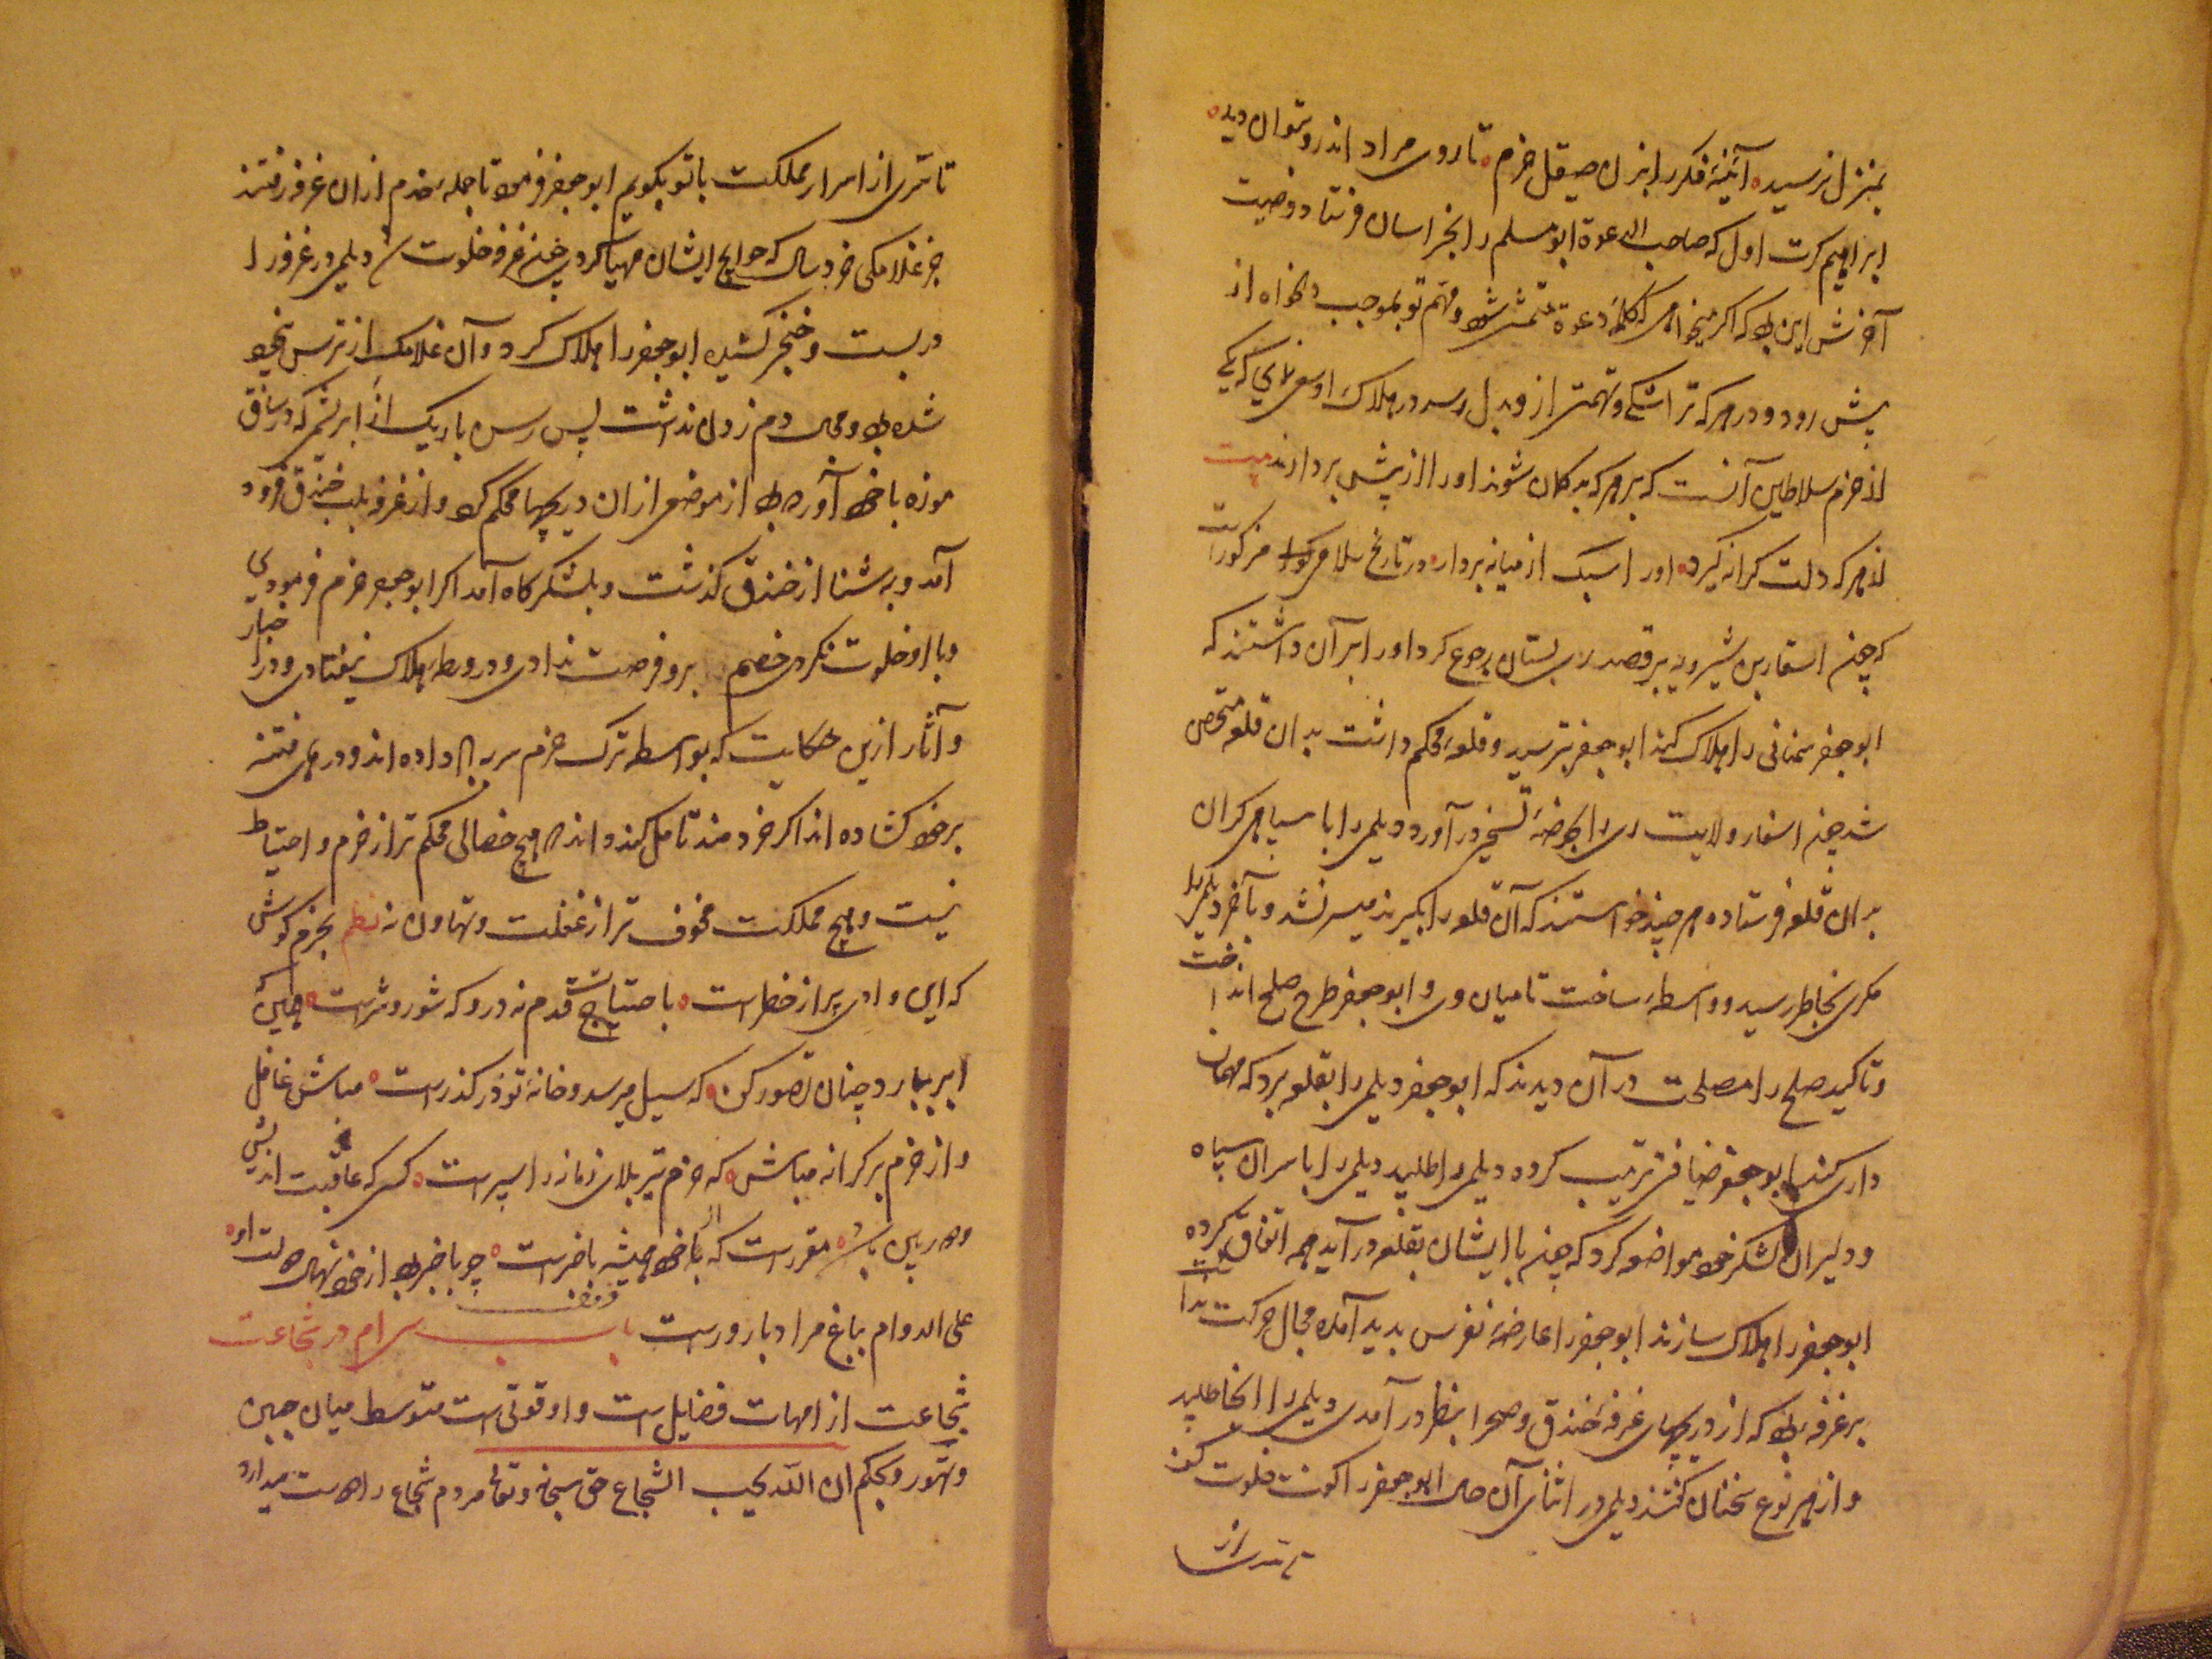 بمنزل نرسید آئینهٔ فکر را بزن صیقل حزم تا روی مراد اندرو بتوان دید
ابراهیم کرت اول که صاحب الدعوة ابو مسلم را بخراسان فرستاد وصیت
آخرش این بود که اگر میخواهی که کلمهٔ دعوة متمشی شود و مهم تو بموجب دلخواه از
پیش رود در هر که ترا شکی و تهمتی از وی بدل رسد در هلاک او سعی نمای که یکی
از حزم سلاطین آنست که بر هر که بدگمان شوند او را از پیش بردارند بیت
از هر که دلت کرانه گیرد او را سبک از میانه بردار در تاریخ سلامی مذکور است
که چون اسفار بن شیرویه بر قصد ری بستان رجوع کرد او را بر آن داشتند که
ابو جعفر سمنانی را هلاک کند ابو جعفر بترسید و قلعهٔ محکم داشت بدان قلعه متحصن
شد چون اسفار ولایت ری را بحوضهٔ تسخیر درآورد دیلمی را با سپاهی گران
بدان قلعه فرستاده هر چند خواستند که آن قلعه را بگیرند میسر نشد و بآخر دیلمی را
مکری بخاطر رسید و واسطهٔ ساخت تا میان وی و ابو جعفر طرح صلح انداخت
و تاکید صلح را مصلحت در آن دیدند که ابو جعفر دیلمی را بقلعه برد که مهمان
داری کند ابو جعفر ضیافتی ترتیب کرده دیلمی را طلبید دیلمی را با سران سپاه
و دلیران لشکر خود مواضعه کرد که چون با ایشان بقلعه درآید همه اتفاق کرده
ابو جعفر را هلاک سازند ابو جعفر را عارضهٔ نقرس پدید آمده مجال حرکت نداشت
بر غرفه بود که از دریچهای غرفه خندق و صحرا بنظر درآمدی دیلمی را آنجا طلبید
و از هر نوع سخنان گفتند دیلمی در اثنای آن حال ابو جعفر را گفت خلوت کن
تا سری از
تا سری از اسرار مملکت با تو بگویم ابو جعفر فرمود تا جمله خدم از ان غرفه رفتند
جز غلامکی خرد سال که حوایج ایشان مهیا کردی چون غرفه خلوت شد دیلمی در غرفه را
در بست و خنجر کشیده ابو جعفر را هلاک کرد و آن غلامک از ترس بیخود
شده بود و مجال دم زدن نداشت پس رسن باریک از ابریشم که در ساق
موزه با خود آورده بود از موضعی از ان دریچها محکم کرد و از غرفه بلب خندق فرود
آمد و به شنا از خندق گذشت و بلشکرگاه آمد اگر ابو جعفر حزم فرمودی
و با او خلوت نکردی خصم برو فرصت ندادی و در ورطهٔ هلاک نیفتادی و در اخبار
و آثار ازین حکایت که بواسطه ترک حزم سر بباد داده اند و در های فتنه
بر خود گشاده اند اگر خردمند تامل کند داند که هیچ خصالی محکم تر از حزم و احتیاط
نیست و هیچ مملکت مخوف تر از غفلت و تهاون نه نظم بحزم کوش
که این وادی پر از خطرست باحتیاج قدم نه درو که شور و شرست همین که
ابر ببارد چنان تصور کن که سیل میرسد و خانهٔ تو در گذرست مباش غافل
و از حزم بر کرانه مباش که حزم تیر بلای زمانه را سپرست کسی که عاقبت اندیش
و دوربین باشد مقررست که با خود همیشه باخبرست چو باخبر بود از خود نهال دولت او
علی الدوام بباغ مراد بارورست باب سی‌ام در شجاعت
شجاعت از امهات فضایل است و او قوتی است متوسط میان جبن
و تهور و بحکم ان الله یحب الشجاع حق سبحانه و تعالی مردم شجاع را دوست میدارد